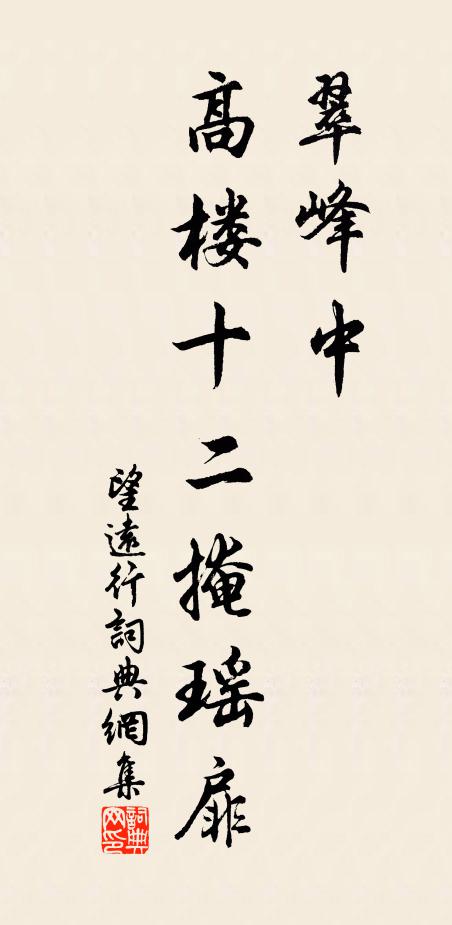 翠峰中
高楼十二掩瑶扉
望遠行詞典網集
詞典网印